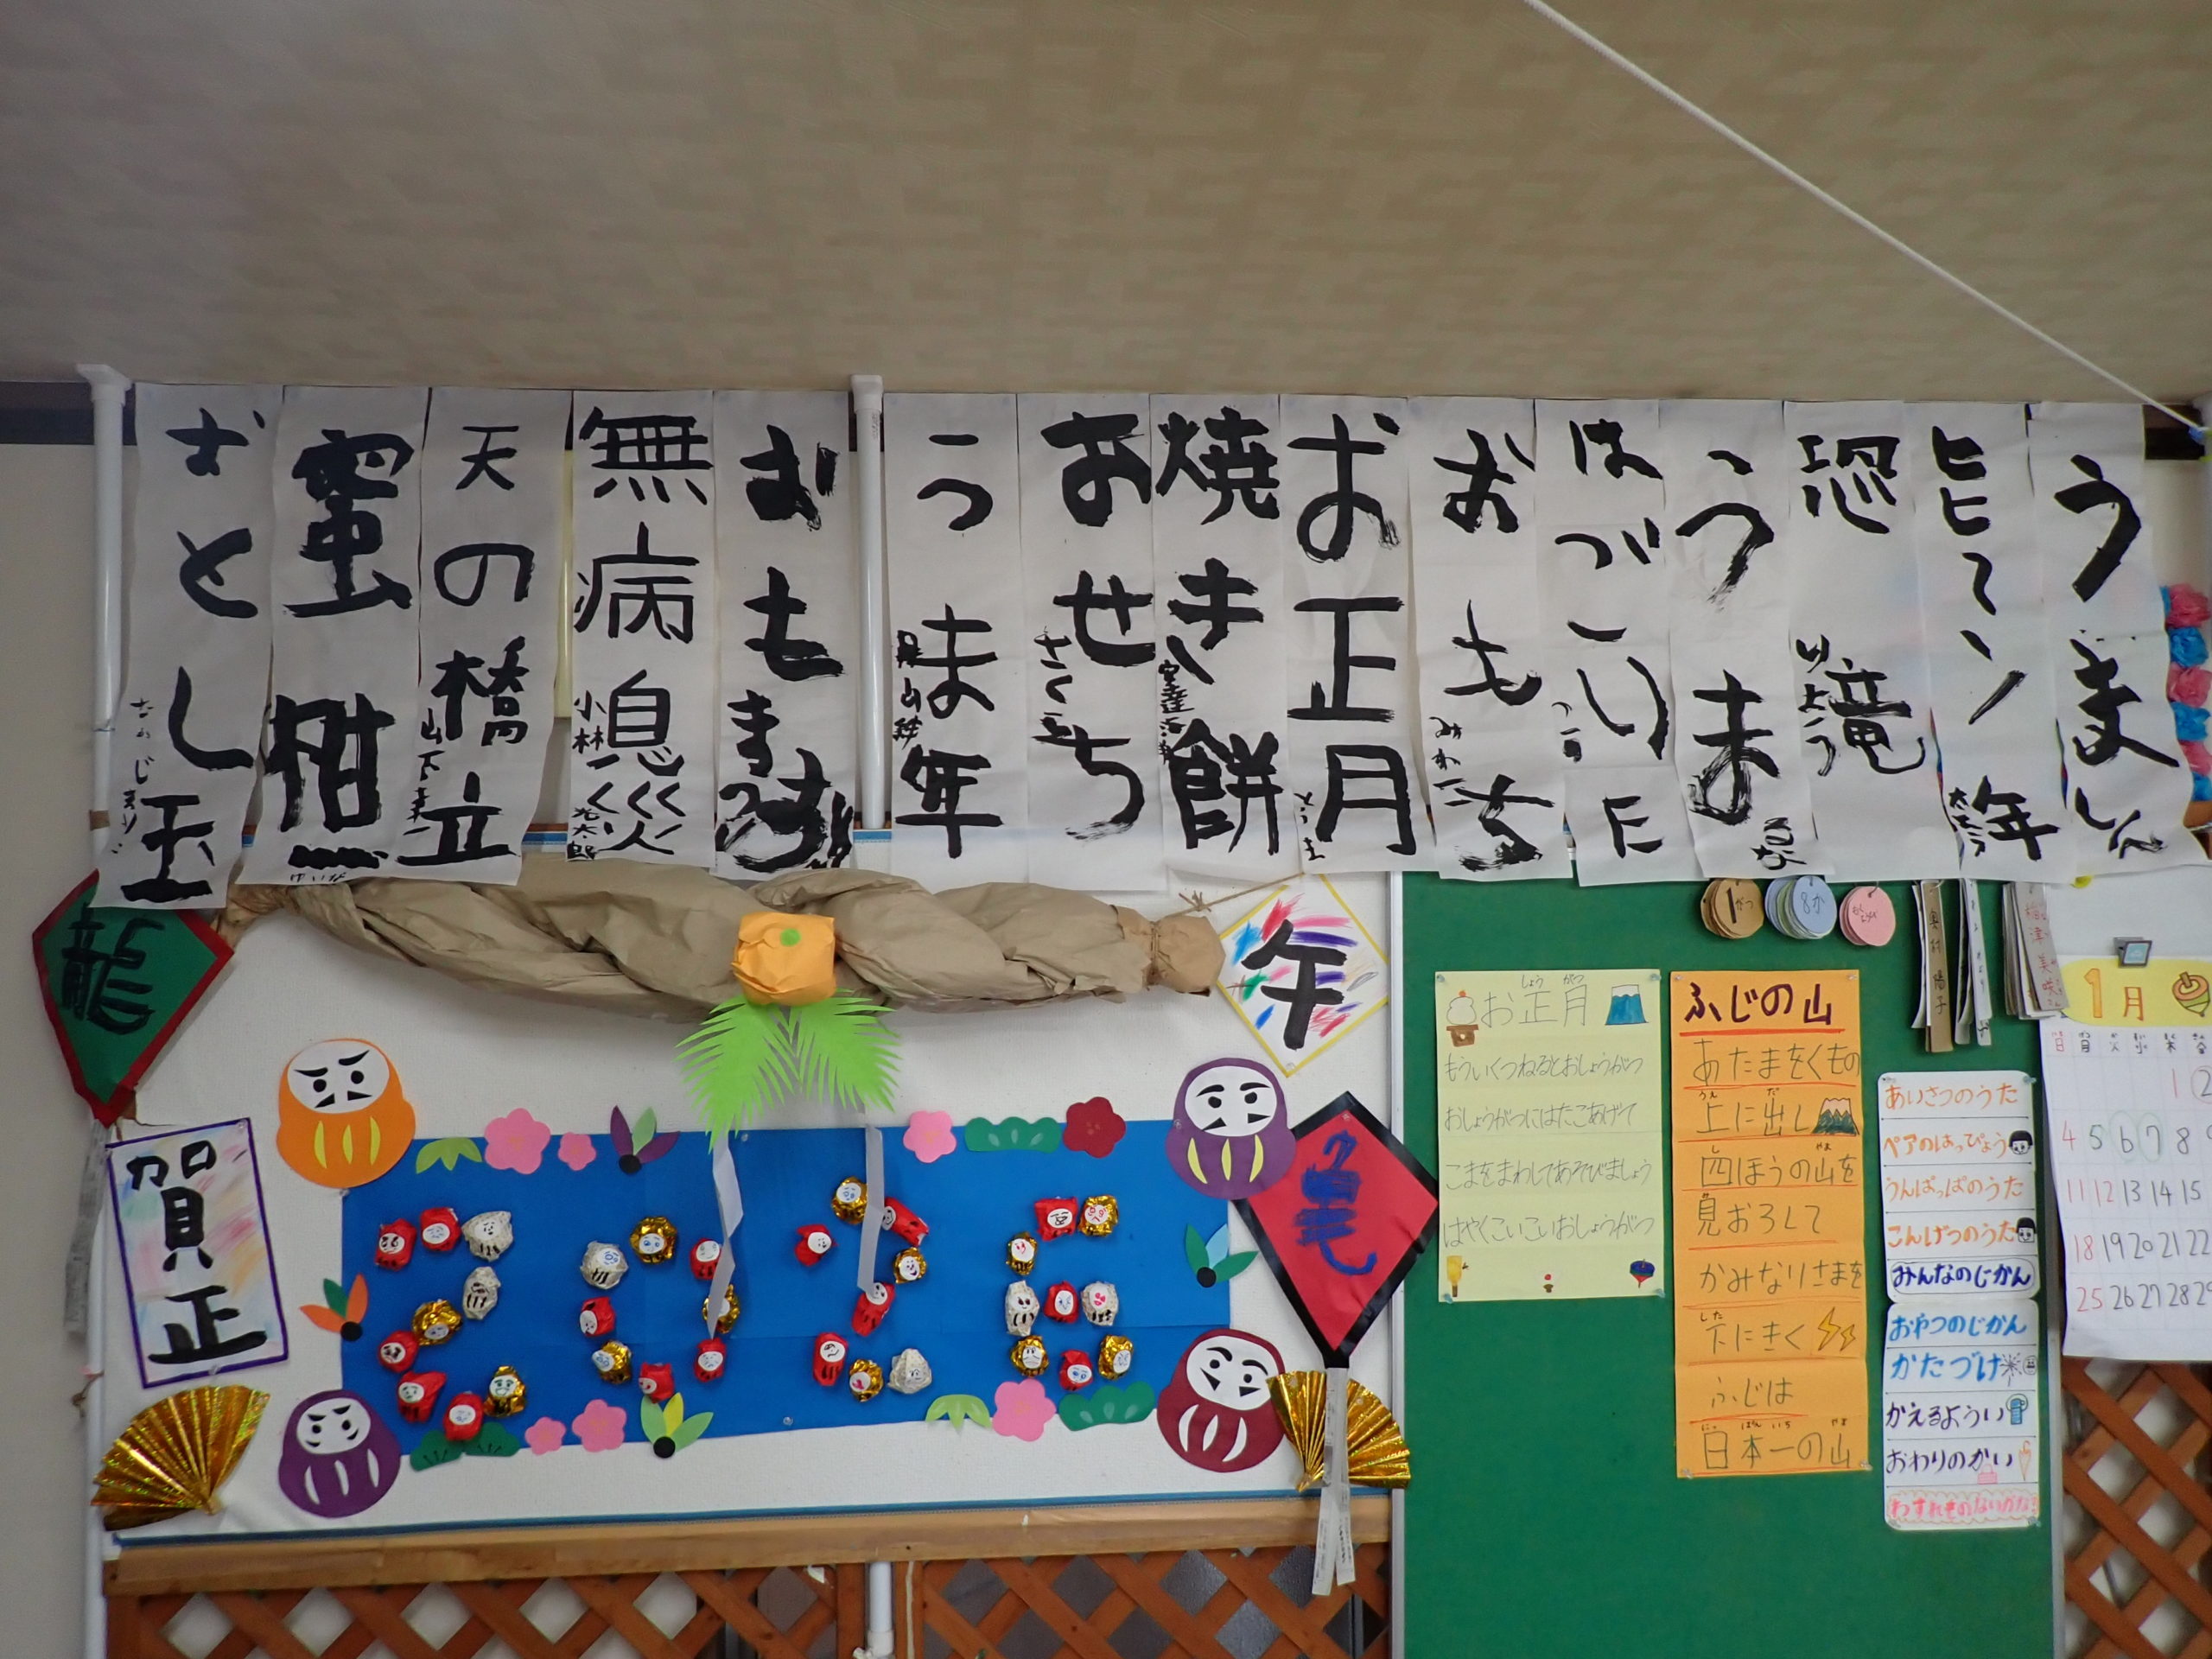 うましん
年
恐竜
うま
るな
はごいた
おもち
お正月
焼き餅
おせち
うま年
おもち
無病息災
小林
天の橋立
山下
蜜柑
おとし玉
龍
午
賀正
亀
1がつ
8か
お正月
しょう がつ
もういくつねるとおしょうがつ
おしょうがつにはたこあげて
こまをまわしてあそびましょう
はやくこいこいおしょうがつ
ふじの山
あたまをくもの
上に出し
四ほうの山を
見おろして
かみなりさまを
下にきく
ふじは
日本一の山
あいさつのうた
ペアのはっぴょう
うんぱっぱのうた
こんげつのうた
みんなのじかん
おやつのじかん
かたづけ
かえるようい
おわりのかい
わすれものないかな?
1月
日 月 火 水 木 金
1 2
4 5 6 7 8 9
11 12 13 14 15
18 19 20 21 22
25 26 27 28 29
2026